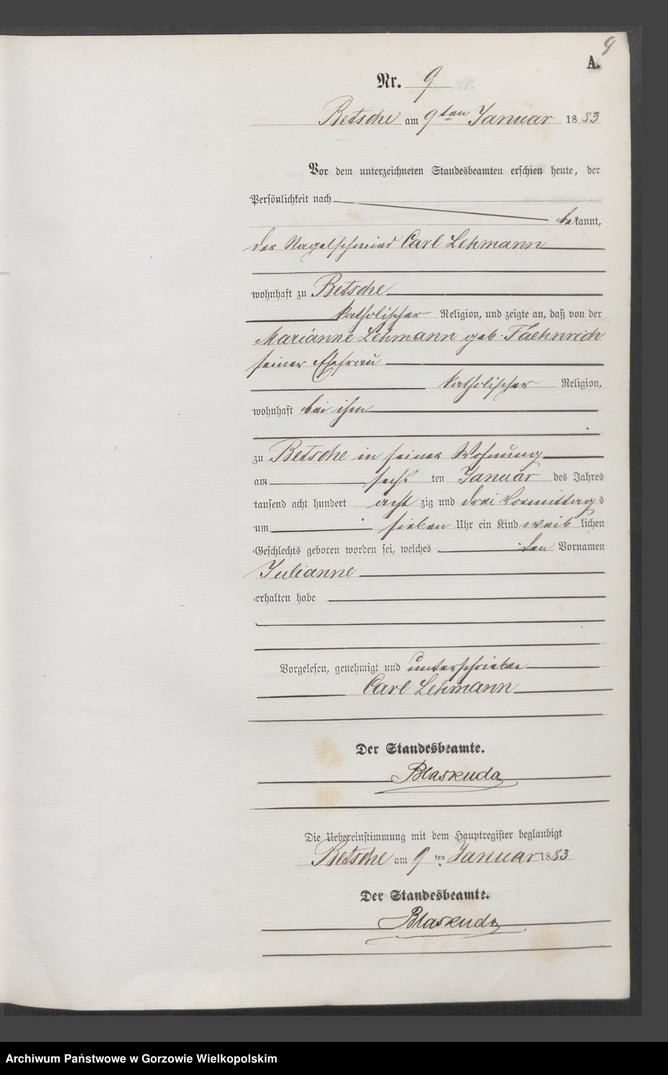 9
A.
Nr. 9
Betsche am 9ten Januar 1883
Vor dem unterzeichneten Standesbeamten erschien heute, der
Persönlichkeit nach
bekannt,
der Nagelschmied Carl Lehmann
wohnhaft zu Betsche
katholischer Religion, und zeigte an, daß von der
Marianne Lehmann geb. Faehnrich
seiner Ehefrau
katholischer Religion,
wohnhaft bei ihm
zu Betsche in seiner Wohnung
am sechs ten Januar des Jahres
tausend acht hundert acht zig und drei Vormittags
um sieben Uhr ein Kind weib lichen
Geschlechts geboren worden sei, welches den Vornamen
Julianne
erhalten habe
Vorgelesen, genehmigt und unterschrieben
Carl Lehmann
Der Standesbeamte.
Blaskuda
Die Uebereinstimmung mit dem Hauptregister beglaubigt
Betsche am 9 ten Januar 1883
Der Standesbeamte.
Blaskuda
Archiwum Państwowe w Gorzowie Wielkopolskim